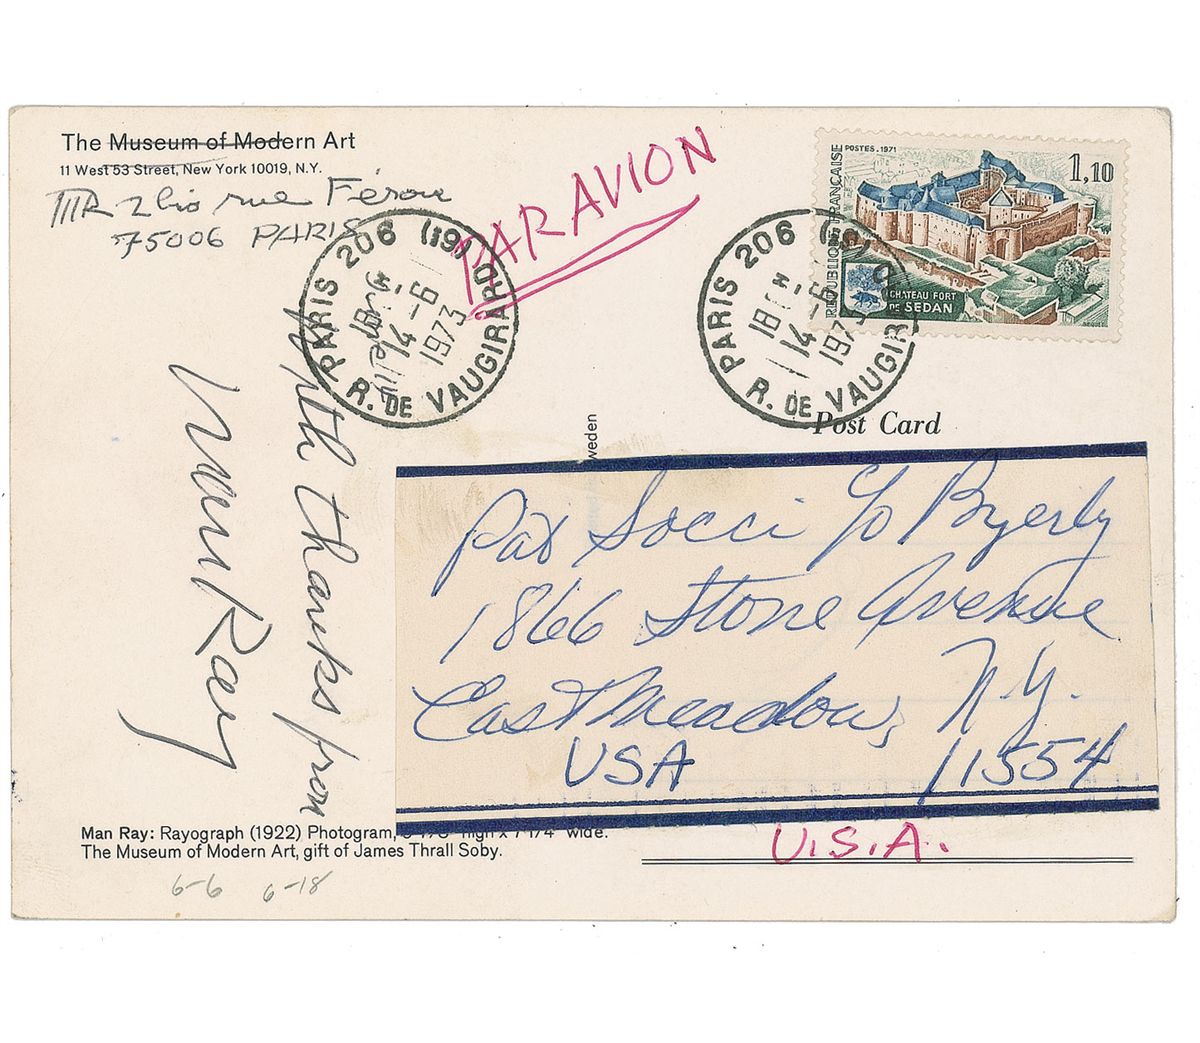 The Museum of Modern Art
11 West 53 Street, New York 10019, N.Y.
MR 2 bis rue Férou
75006 PARIS
PAR AVION
PARIS 206 (19)
18H
14-6
1973
R. DE VAUGIRARD
PARIS 206 (19)
18H
14-6
1973
R. DE VAUGIRARD
POSTES 1971
1,10
REPUBLIQUE FRANÇAISE
CHATEAU FORT
DE SEDAN
With thanks from
Man Ray
Post Card
weden
Pat Socci c/o Byerly
1866 Stone Avenue
East Meadow, N.Y.
USA 11554
U.S.A.
Man Ray: Rayograph (1922) Photogram, high x 7 1/4" wide.
The Museum of Modern Art, gift of James Thrall Soby.
6-6 6-18